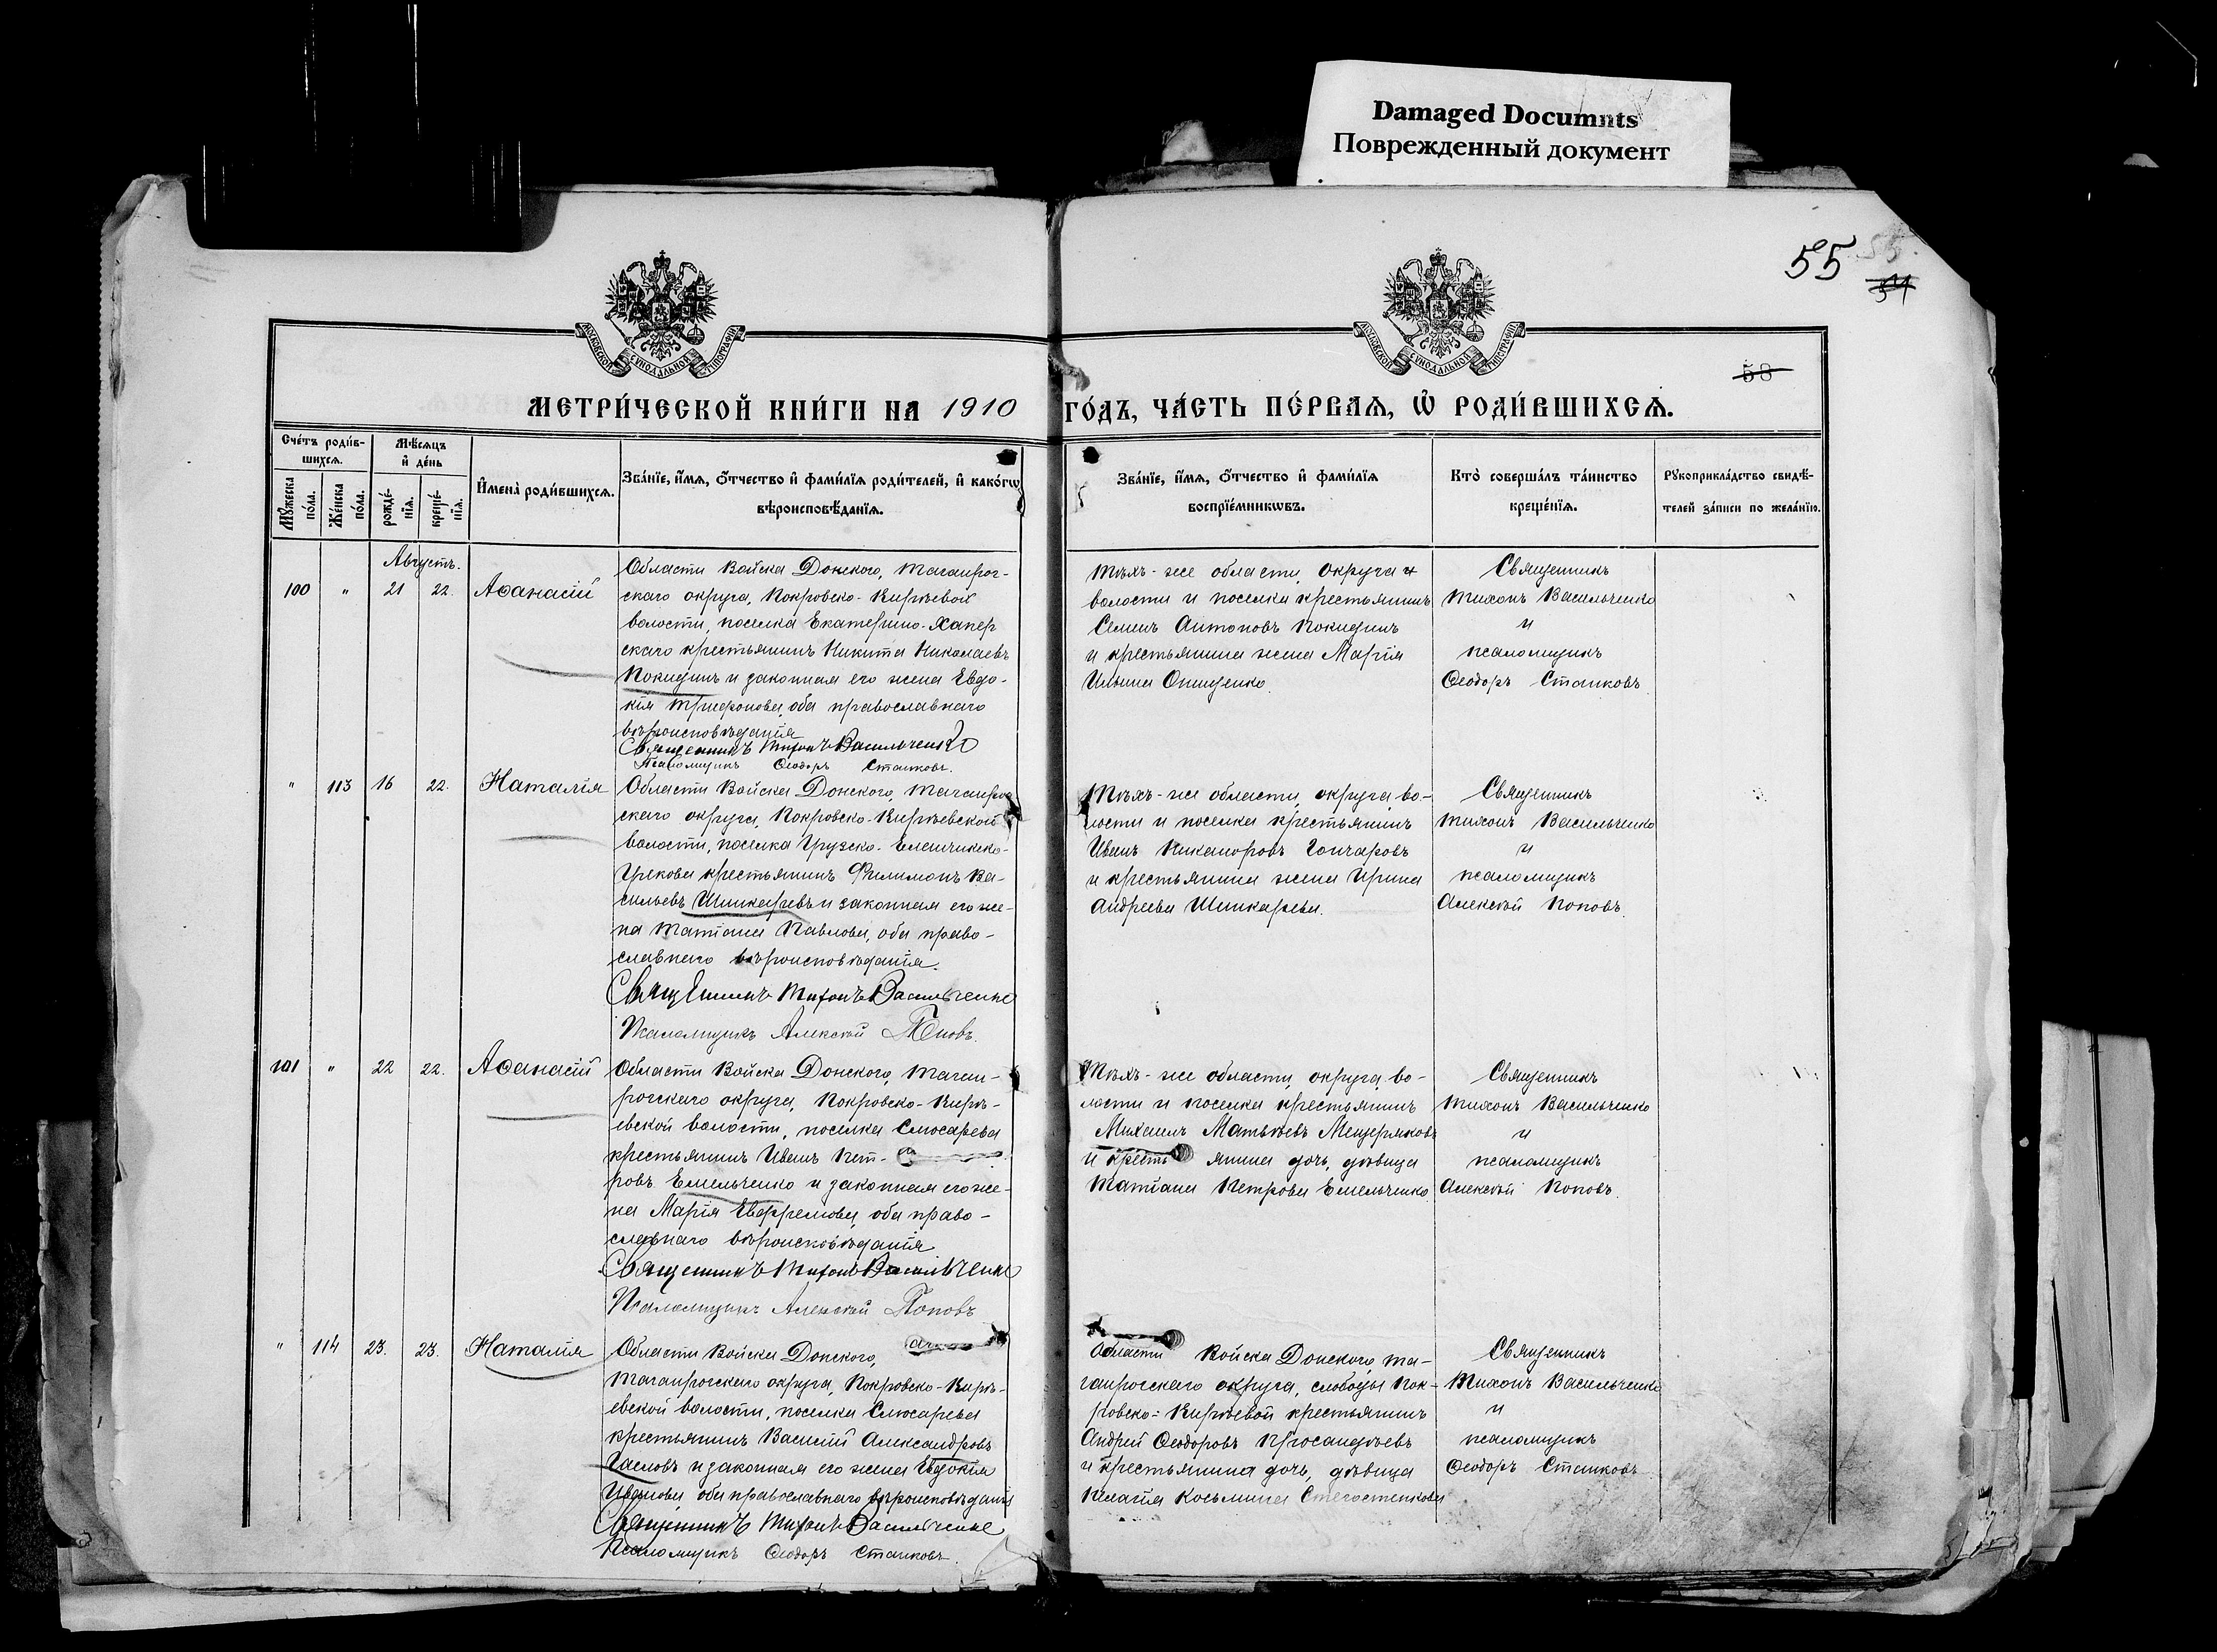 Damaged Documnts
Поврежденный документ
55
55
54
58
МОСКОВСКОЙ СѴНОДАЛЬНОЙ ТИПОГРАФІИ
МОСКОВСКОЙ СѴНОДАЛЬНОЙ ТИПОГРАФІИ
МЕТРИ́ЧЕСКОЙ КНИ́ГИ НА 1910 ГО́ДЪ, ЧА́СТЬ ПЕ́РВАѦ, Ѡ҆ РОДИ́ВШИХСѦ.
Сче́тъ роди́в-
шихсѧ.
Мѹжеска по́ла.
Же́нска по́ла.
Мѣ́сѧцъ
и҆ де́нь
рожде́-
нїѧ.
креще́-
нїѧ.
И҆мена̀ роди́вшихсѧ.
Зва́нїе, и҆́мѧ, ѻ҆́тчество и҆ фами́лїѧ роди́телей, и҆ како́гѡ
вѣроисповѣ́данїѧ.
Зва́нїе, и҆́мѧ, ѻ҆́тчество и҆ фами́лїѧ
воспрїе́мникѡвъ.
Кто̀ соверша́лъ та́инство
креще́нїѧ.
Рꙋкоприкла́дство свидѣ́-
телей за́писи по жела́нїю.
Августъ.
100 " 21 22. Аѳанасій
Области Войска Донского, Таганрог-
скаго округа, Покровско-Кирѣевой
волости, поселка Екатерино-Хапер
скаго крестьянинъ Никита Николаевъ
Покидинъ и законная его жена Евдо-
кія Трифонова, оба православнаго
вѣроисповѣданія
Священникъ Тихонъ Васильченко
Псаломщикъ Ѳеодоръ Станковъ.
Тѣхъ-же области, округа и
волости и поселка крестьянинъ
Семенъ Антоновъ Покидинъ
и крестьянина жена Марія
Ильина Онищенко.
Священникъ
Тихонъ Васильченко
и
псаломщикъ
Ѳеодоръ Станковъ
" 113 16 22. Наталія
Области Войска Донского, Таганрог
скаго округа, Покровско-Кирѣевской
волости, поселка Грузско-Еланчикско-
Грекова крестьянинъ Филимонъ Ва-
сильевъ Шинкаревъ и законная его же-
на Татіана Павлова, оба право-
славнаго вѣроисповѣданія.
Священникъ Тихонъ Васильченко
Псаломщикъ Алексѣй Поповъ.
Тѣхъ-же области, округа, во-
лости и поселка крестьянинъ
Иванъ Никаноровъ Гончаровъ
и крестьянина жена Ирина
Андреева Шинкарева.
Священникъ
Тихонъ Васильченко
и
псаломщикъ
Алексѣй Поповъ.
101 " 22 22. Аѳанасій
Области Войска Донского, Таган-
рогскаго округа, Покровско-Кирѣ-
евской волости, поселка Слюсарева
крестьянинъ Иванъ Пет-
ровъ Емельченко и законная его же-
на Марія Евфремова, оба право-
славнаго вѣроисповѣданія
Священникъ Тихонъ Васильченко
Псаломщикъ Алексѣй Поповъ
Тѣхъ-же области, округа, во-
лости и поселка крестьянинъ
Михаилъ Матвѣевъ Мещеряковъ
и кресть янина дочь, дѣвица
Татіана Петрова Емельченко.
Священникъ
Тихонъ Васильченко
и
псаломщикъ
Алексѣй Поповъ.
" 114 23. 23. Наталія
Области Войска Донского,
Таганрогскаго округа, Покровско-Кирѣ-
евской волости, поселка Слюсарева
крестьянинъ Василій Александровъ
Часловъ и законная его жена Евдокія
Иванова, оба православнаго вѣроисповѣданія
Священникъ Тихонъ Васильченко
Псаломщикъ Ѳеодоръ Станковъ.
Области Войска Донского, Та-
ганрогскаго округа, слободы Пок-
ровско-Кирѣевой крестьянинъ
Андрей Ѳеодоровъ Просандѣевъ
и крестьянина дочь, дѣвица
Пелагія Косьмина Стегостенкова
Священникъ
Тихонъ Васильченко
и
псаломщикъ
Ѳеодоръ Станковъ.